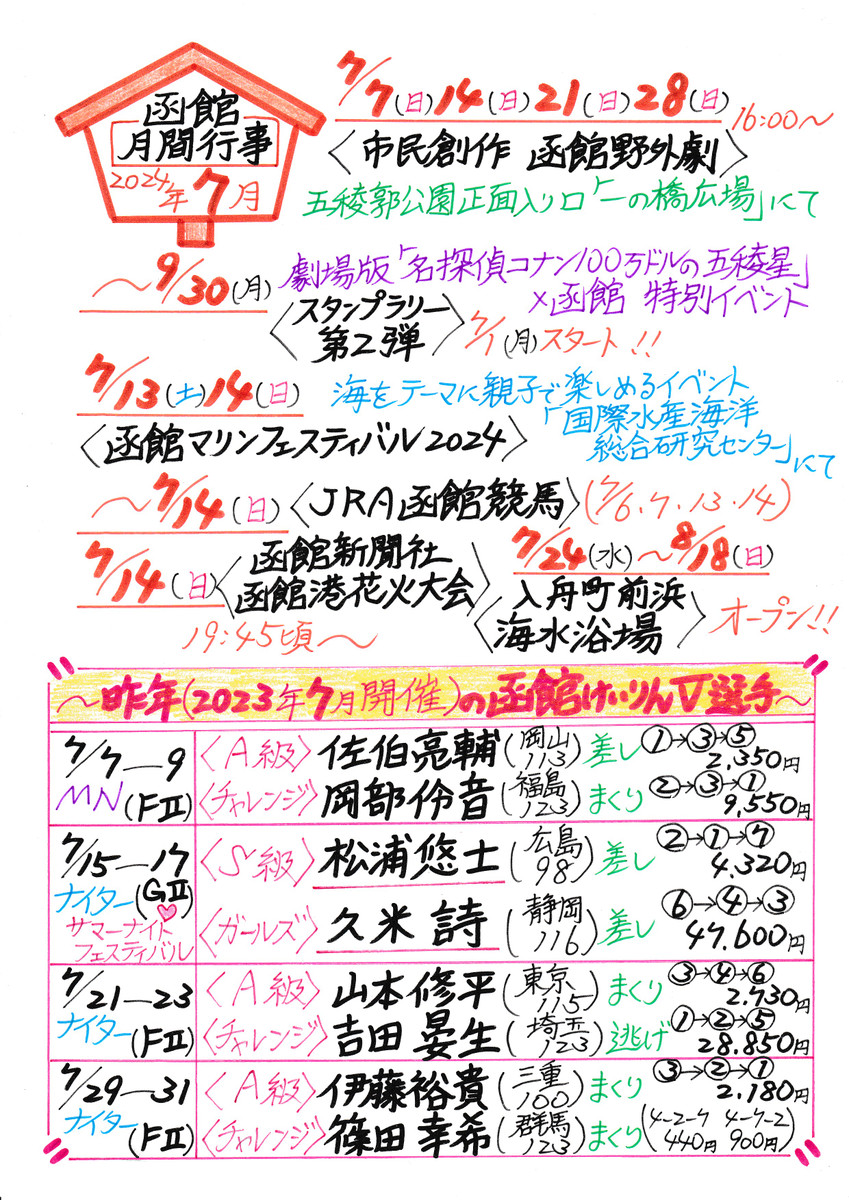 函館
月間行事
2024年7月
7/7(日)14(日)21(日)28(日)
16:00〜
〈市民創作 函館野外劇〉
五稜郭公園正面入り口「一の橋広場」にて
〜9/30(月)
劇場版「名探偵コナン100万ドルの五稜星」
×函館 特別イベント
〈スタンプラリー
第2弾〉
7/1(月)スタート!!
7/13(土)14(日)
海をテーマに親子で楽しめるイベント
〈函館マリンフェスティバル2024〉
「国際水産海洋
総合研究センター」にて
〜7/14(日)〈JRA函館競馬〉(7/6.7.13.14)
7/14(日)〈函館新聞社
函館港花火大会〉
19:45頃〜
7/24(水)〜8/18(日)
〈入舟町前浜
海水浴場〉
オープン!!
〜昨年(2023年7月開催)の函館けいりんV選手〜
7/7―9
MN(FⅡ)
〈A級〉佐伯亮輔(岡山113)差し ①→③→⑤ 2.350円
〈チャレンジ〉岡部伶音(福島123)まくり ②→③→① 9.550円
7/15―17
ナイター(GⅡ)
サマーナイト
フェスティバル
〈S級〉松浦悠士(広島98)差し ②→①→⑦ 4.320円
〈ガールズ〉久米詩(静岡116)差し ⑥→④→③ 47.600円
7/21―23
ナイター(FⅡ)
〈A級〉山本修平(東京115)まくり ③→④→⑥ 2.730円
〈チャレンジ〉吉田晏生(埼玉123)逃げ ①→②→⑤ 28.850円
7/29―31
ナイター(FⅡ)
〈A級〉伊藤裕貴(三重100)まくり ③→②→① 2.180円
〈チャレンジ〉篠田幸希(群馬123)まくり(4-2-7 440円 4-7-2 900円)